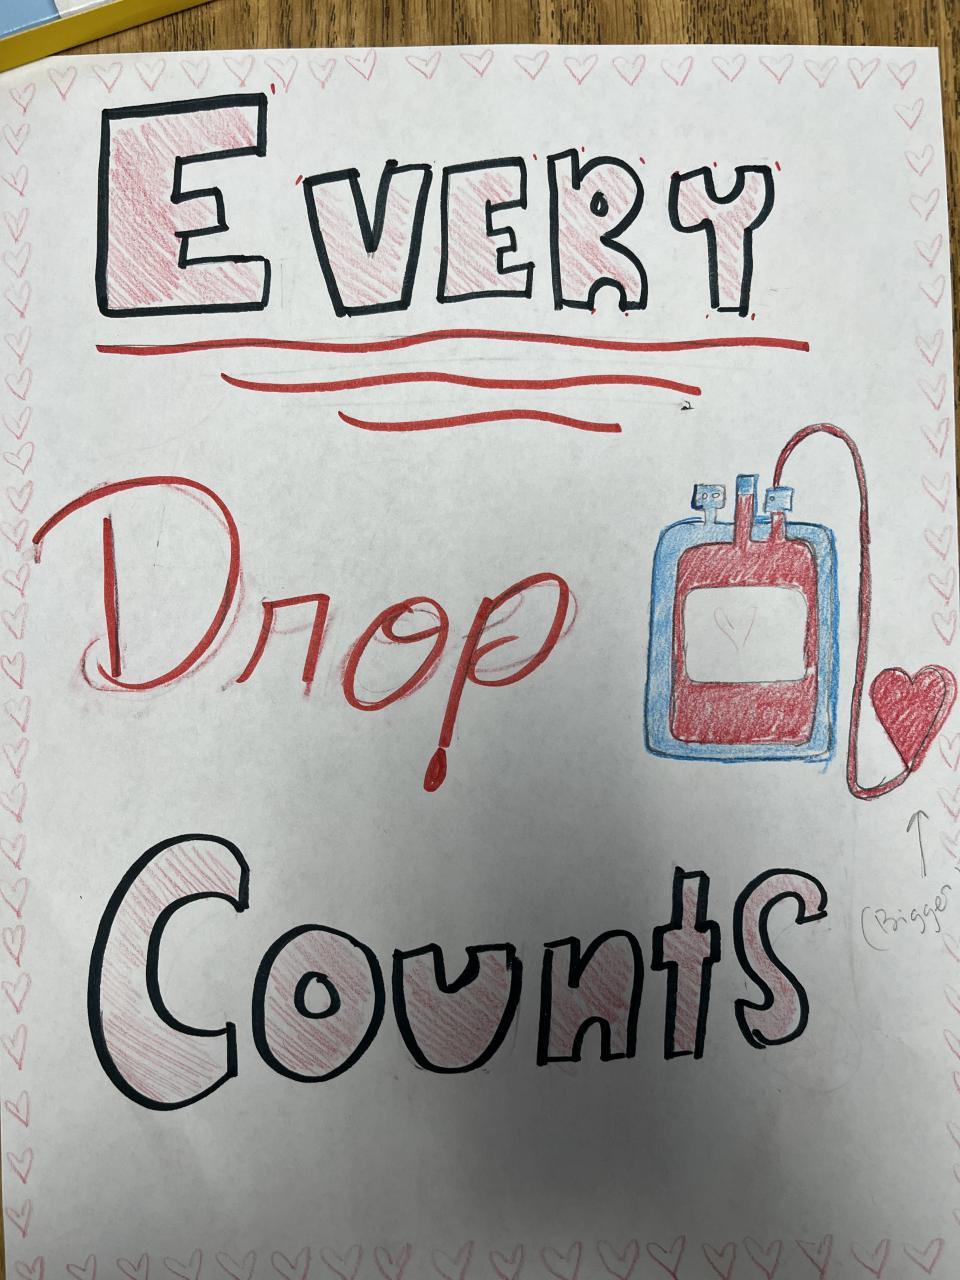 EVERY
Drop
Counts
(Bigger